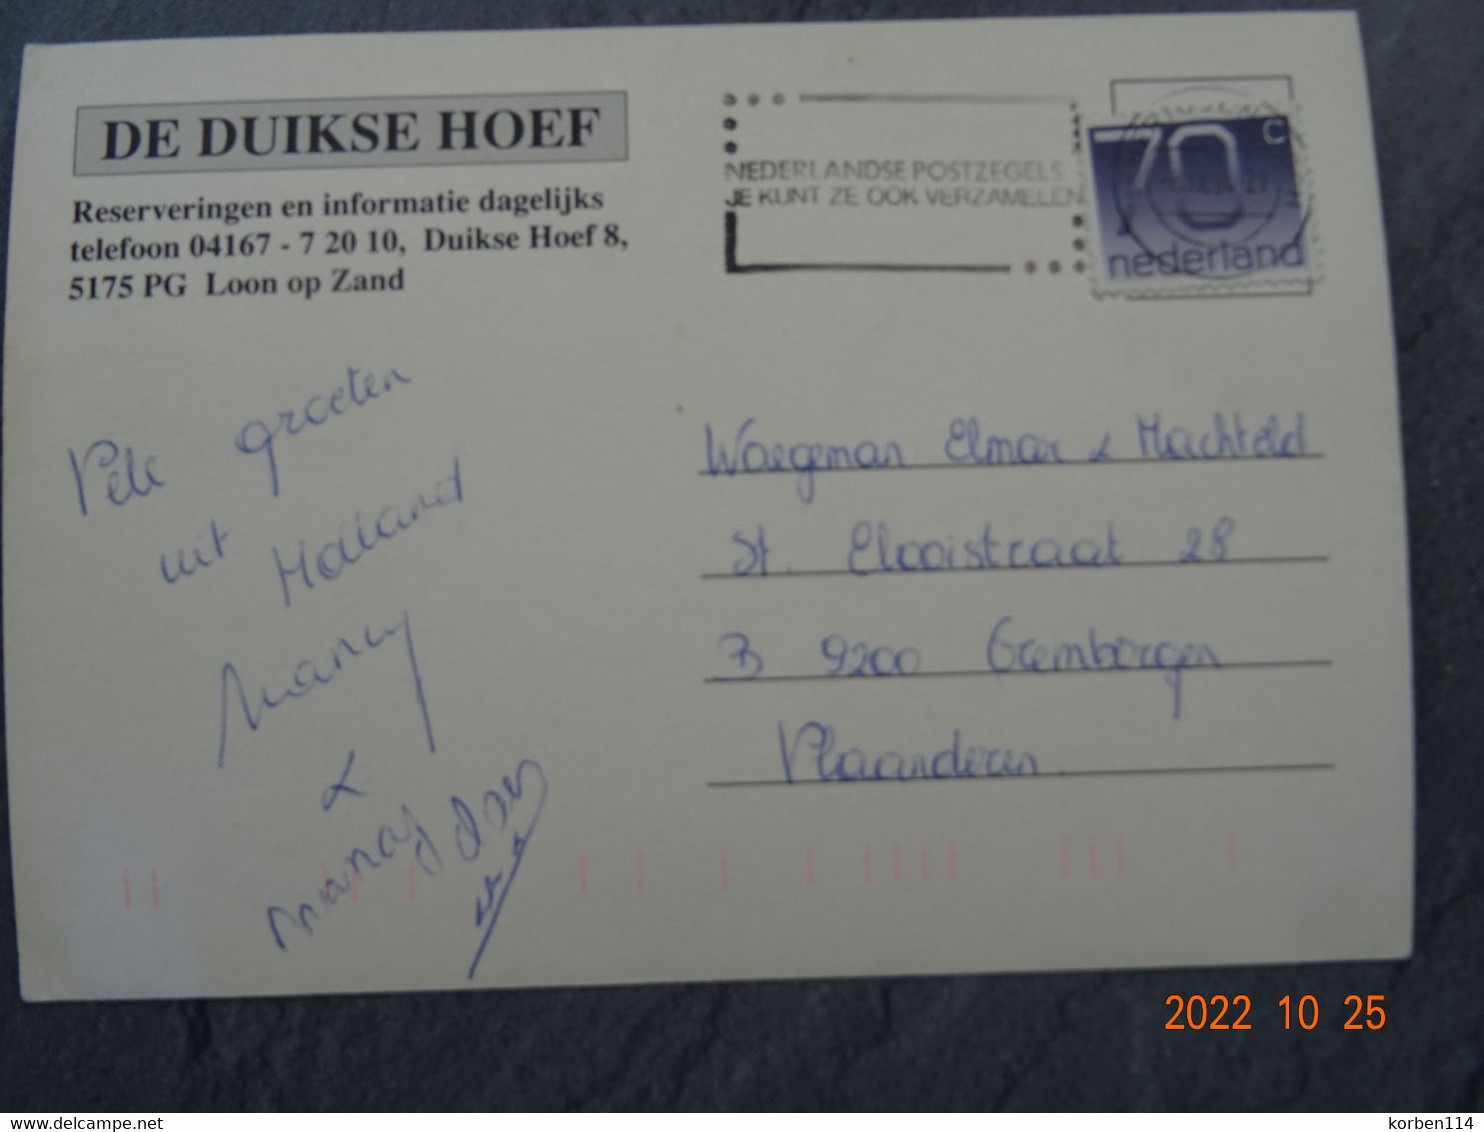 DE DUIKSE HOEF
Reserveringen en informatie dagelijks
telefoon 04167 - 7 20 10, Duikse Hoef 8,
5175 PG Loon op Zand
NEDERLANDSE POSTZEGELS
JE KUNT ZE OOK VERZAMELEN
70 C
nederland
Vele groeten
uit Holland
Nancy
&
Waegeman Elmar & Machteld
St. Elooistraat 28
B 9200 Grembergen
Vlaanderen
2022 10 25
delcampe.net
korben114